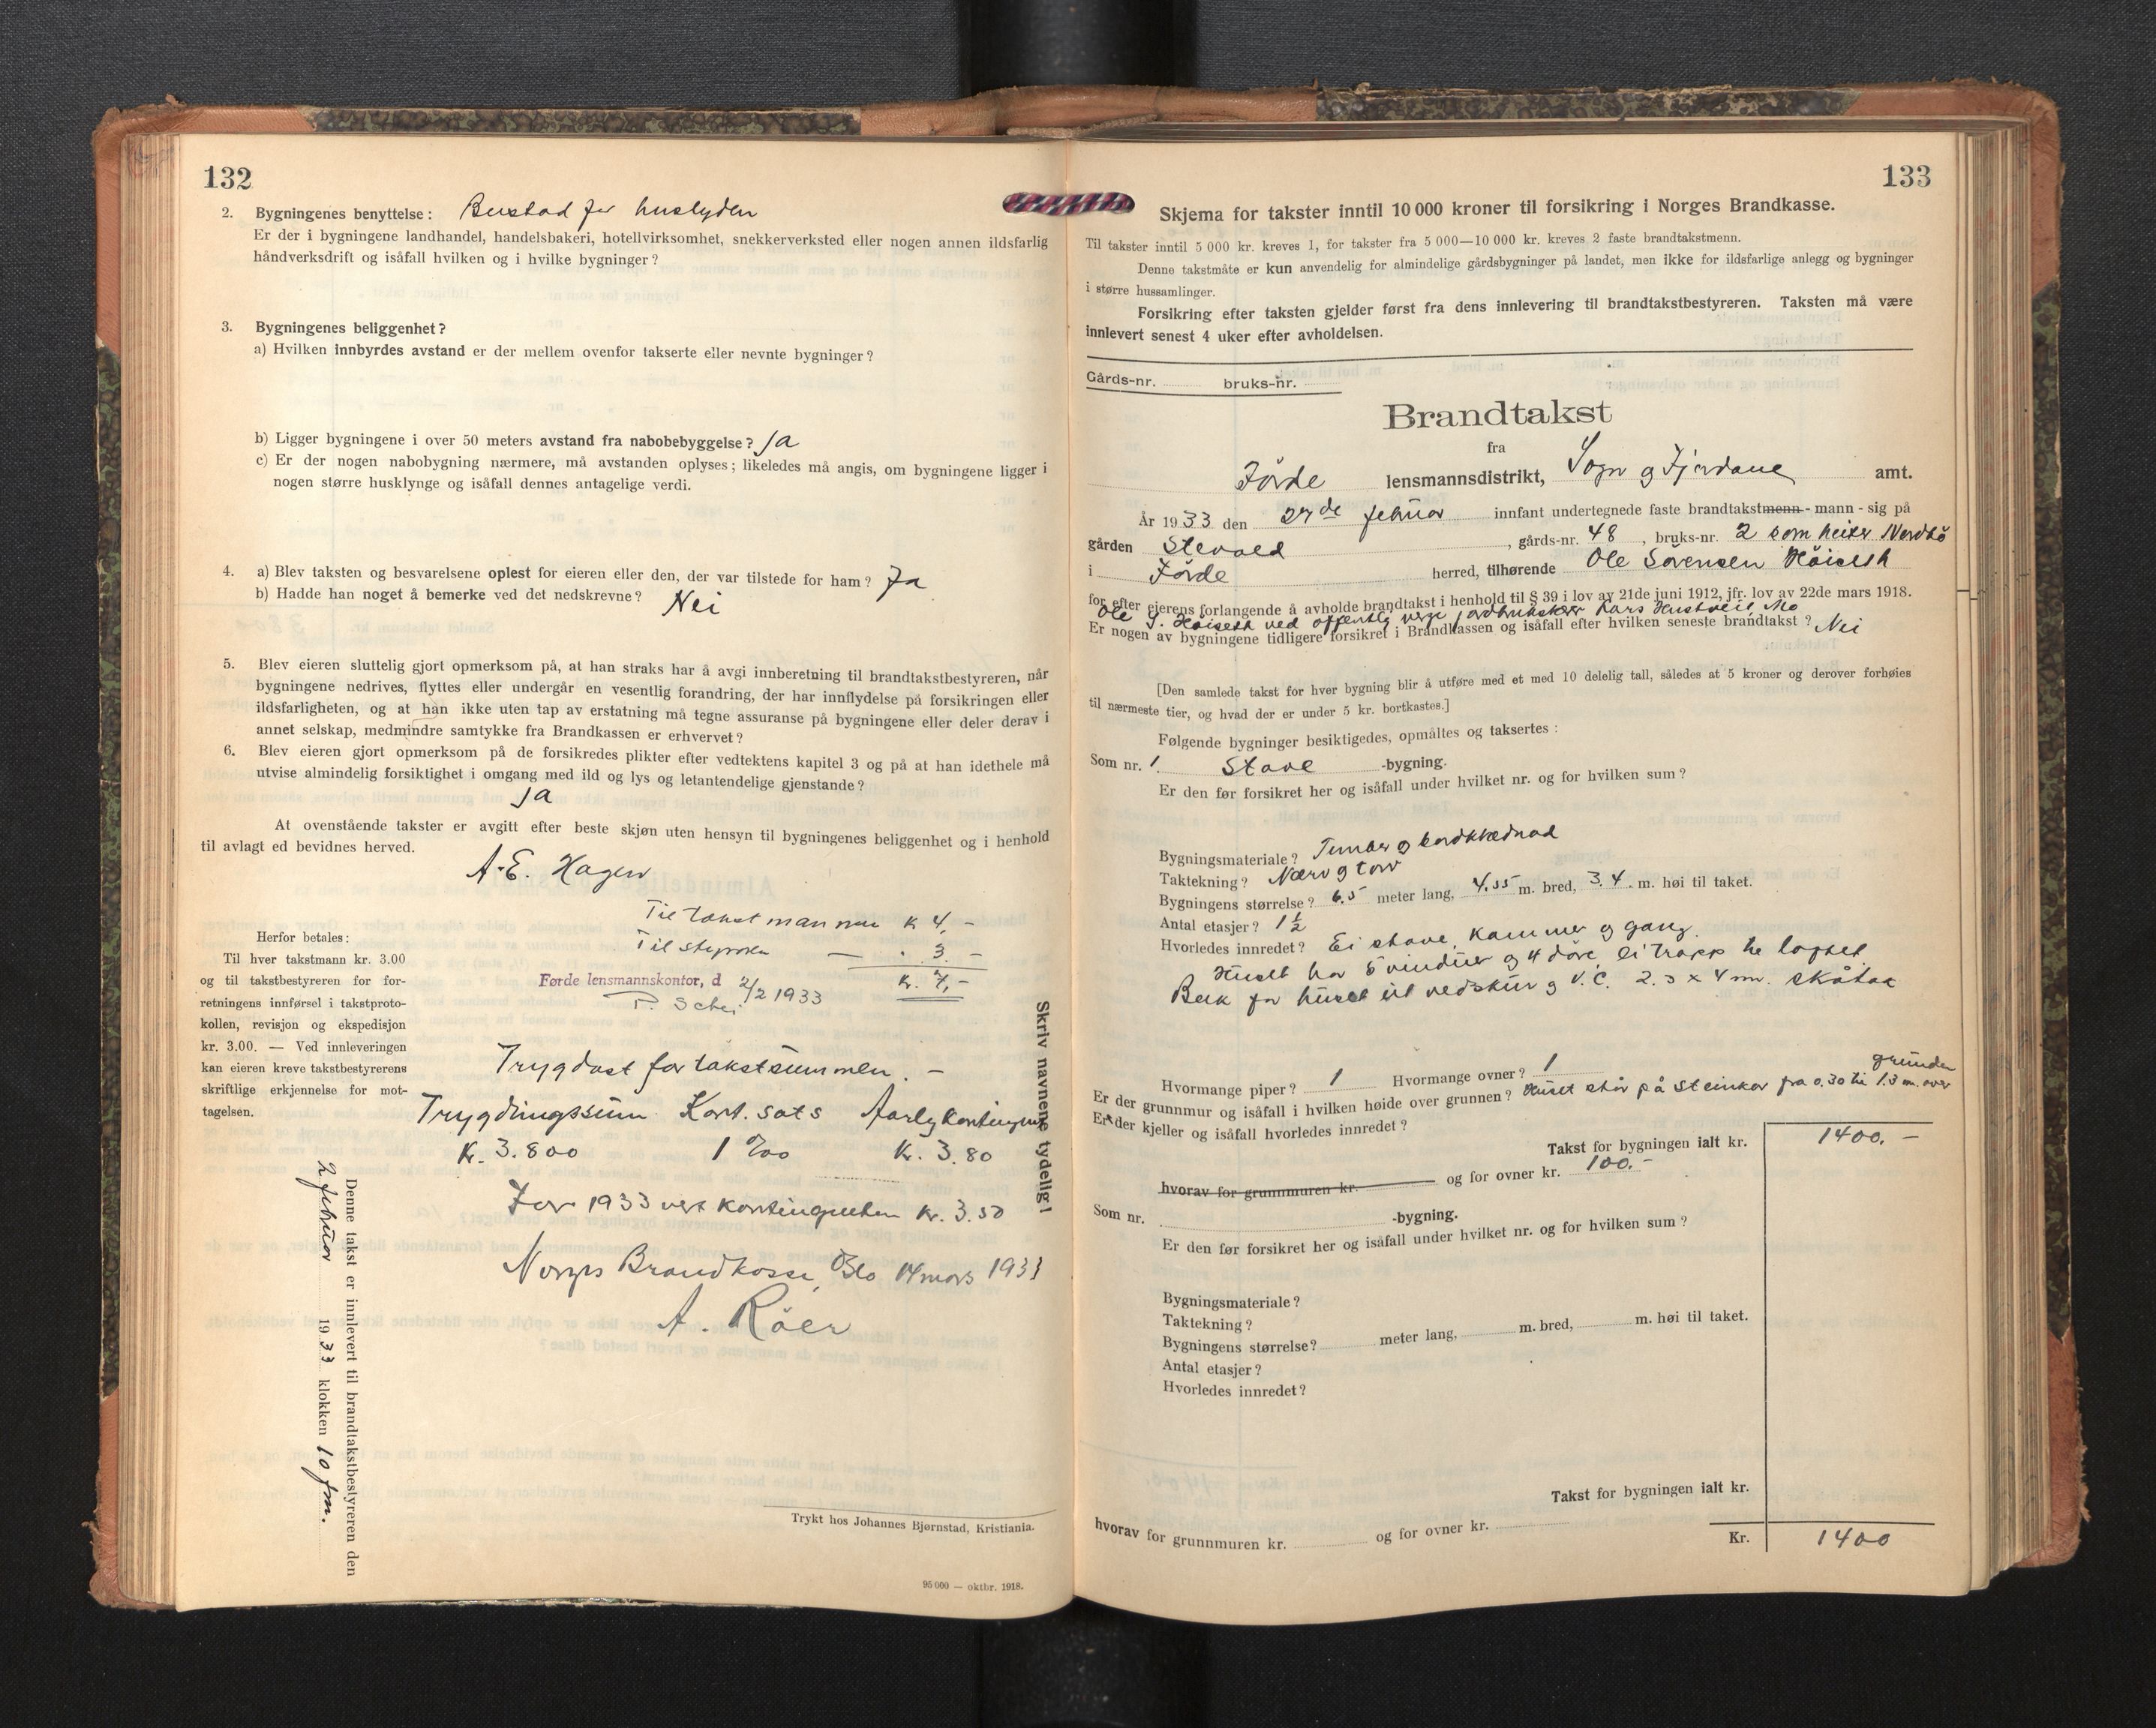 132
2. Bygningenes benyttelse: Bustad for huslyden
Er der i bygningene landhandel, handelsbakeri, hotellvirksomhet, snekkerverksted eller nogen annen ildsfarlig
håndverksdrift og isåfall hvilken og i hvilke bygninger?
3. Bygningenes beliggenhet?
a) Hvilken innbyrdes avstand er der mellem ovenfor takserte eller nevnte bygninger?
b) Ligger bygningene i over 50 meters avstand fra nabobebyggelse? Ja
c) Er der nogen nabobygning nærmere, må avstanden oplyses; likeledes må angis, om bygningene ligger i
nogen større husklynge og isåfall dennes antagelige verdi.
4. a) Blev taksten og besvarelsene oplest for eieren eller den, der var tilstede for ham? Ja
b) Hadde han noget å bemerke ved det nedskrevne? Nei
5. Blev eieren sluttelig gjort opmerksom på, at han straks har å avgi innberetning til brandtakstbestyreren, når
bygningene nedrives, flyttes eller undergår en vesentlig forandring, der har innflydelse på forsikringen eller
ildsfarligheten, og at han ikke uten tap av erstatning må tegne assuranse på bygningene eller deler derav i
annet selskap, medmindre samtykke fra Brandkassen er erhvervet?
6. Blev eieren gjort opmerksom på de forsikredes plikter efter vedtektens kapitel 3 og på at han idethele må
utvise almindelig forsiktighet i omgang med ild og lys og letantendelige gjenstande?
Ja
At ovenstående takster er avgitt efter beste skjøn uten hensyn til bygningenes beliggenhet og i henhold
til avlagt ed bevidnes herved.
A. E. Hagen
Til takstmannen K 4,-
Til styraren — - 3.-
Kr. 7,-
Førde lensmannskontor, d 2/2 1933
P. Schei
Herfor betales:
Til hver takstmann kr. 3.00
og til takstbestyreren for for-
retningens innførsel i takstproto-
kollen, revisjon og ekspedisjon
kr. 3.00. — Ved innleveringen
kan eieren kreve takstbestyrerens
skriftlige erkjennelse for mot-
tagelsen.
Trygdast for takstsummen. -
Trygdingssum Kont. sats Aarlg kontingent
Kr. 3.800 1 ‰ Kr. 3.80
For 1933 vert kontingenten Kr. 3.50
Norges Brandkasse, Oslo 14 mars 1933
A. Röer
Skriv navnene tydelig!
Denne takst er innlevert til brandtakstbestyreren den
2 februar 1933 klokken 10 fm.
Trykt hos Johannes Bjørnstad, Kristiania.
95 000 — oktbr. 1918.
133
Skjema for takster inntil 10 000 kroner til forsikring i Norges Brandkasse.
Til takster inntil 5 000 kr. kreves 1, for takster fra 5 000—10 000 kr. kreves 2 faste brandtakstmenn.
Denne takstmåte er kun anvendelig for almindelige gårdsbygninger på landet, men ikke for ildsfarlige anlegg og bygninger
i større hussamlinger.
Forsikring efter taksten gjelder først fra dens innlevering til brandtakstbestyreren. Taksten må være
innlevert senest 4 uker efter avholdelsen.
Gårds-nr. bruks-nr.
Brandtakst
fra
Förde lensmannsdistrikt, Sogn og Fjordane amt.
År 1933 den 27de februar innfant undertegnede faste brandtakstmenn - mann - sig på
gården Stevold, gårds-nr. 48, bruks-nr. 2 som heiter Nordbö
i Förde herred, tilhørende Ole Sörensen Höiseth
for efter eierens forlangende å avholde brandtakst i henhold til § 39 i lov av 21de juni 1912, jfr. lov av 22de mars 1918.
Ole S. Höiseth ved offentlg verge jordbruksskær Lars Hustveit, Mo
Er nogen av bygningene tidligere forsikret i Brandkassen og isåfall efter hvilken seneste brandtakst? Nei
[Den samlede takst for hver bygning blir å utføre med et med 10 delelig tall, således at 5 kroner og derover forhøies
til nærmeste tier, og hvad der er under 5 kr. bortkastes.]
Følgende bygninger besiktigedes, opmåltes og taksertes:
Som nr. 1. Stove -bygning.
Er den før forsikret her og isåfall under hvilket nr. og for hvilken sum?
Bygningsmateriale? Timber og bordklædnad
Taktekning? Næve og torv
Bygningens størrelse? 6.5 meter lang, 4.55 m. bred, 3.4. m. høi til taket.
Antal etasjer? 1 ½
Hvorledes innredet? Ei stove, kammer og gang.
Huset har 5 vinduer og 4 döre, ei trapp til loftet
Bak for huset eit vedskur og V.C. 2.3 x 4 m. skåtak
Hvormange piper? 1 Hvormange ovner? 1
Er der grunnmur og isåfall i hvilken høide over grunnen? Huset står på steinkar fra 0.30 til 1.3 m. over grunden
Er der kjeller og isåfall hvorledes innredet?
Takst for bygningen ialt kr. 1400.-
hvorav for grunnmuren kr. og for ovner kr. 100.-
Som nr. -bygning.
Er den før forsikret her og isåfall under hvilket nr. og for hvilken sum?
Bygningsmateriale?
Taktekning?
Bygningens størrelse? meter lang, m. bred, m. høi til taket.
Antal etasjer?
Hvorledes innredet?
Takst for bygningen ialt kr.
hvorav for grunnmuren kr. og for ovner kr.
Kr. 1400